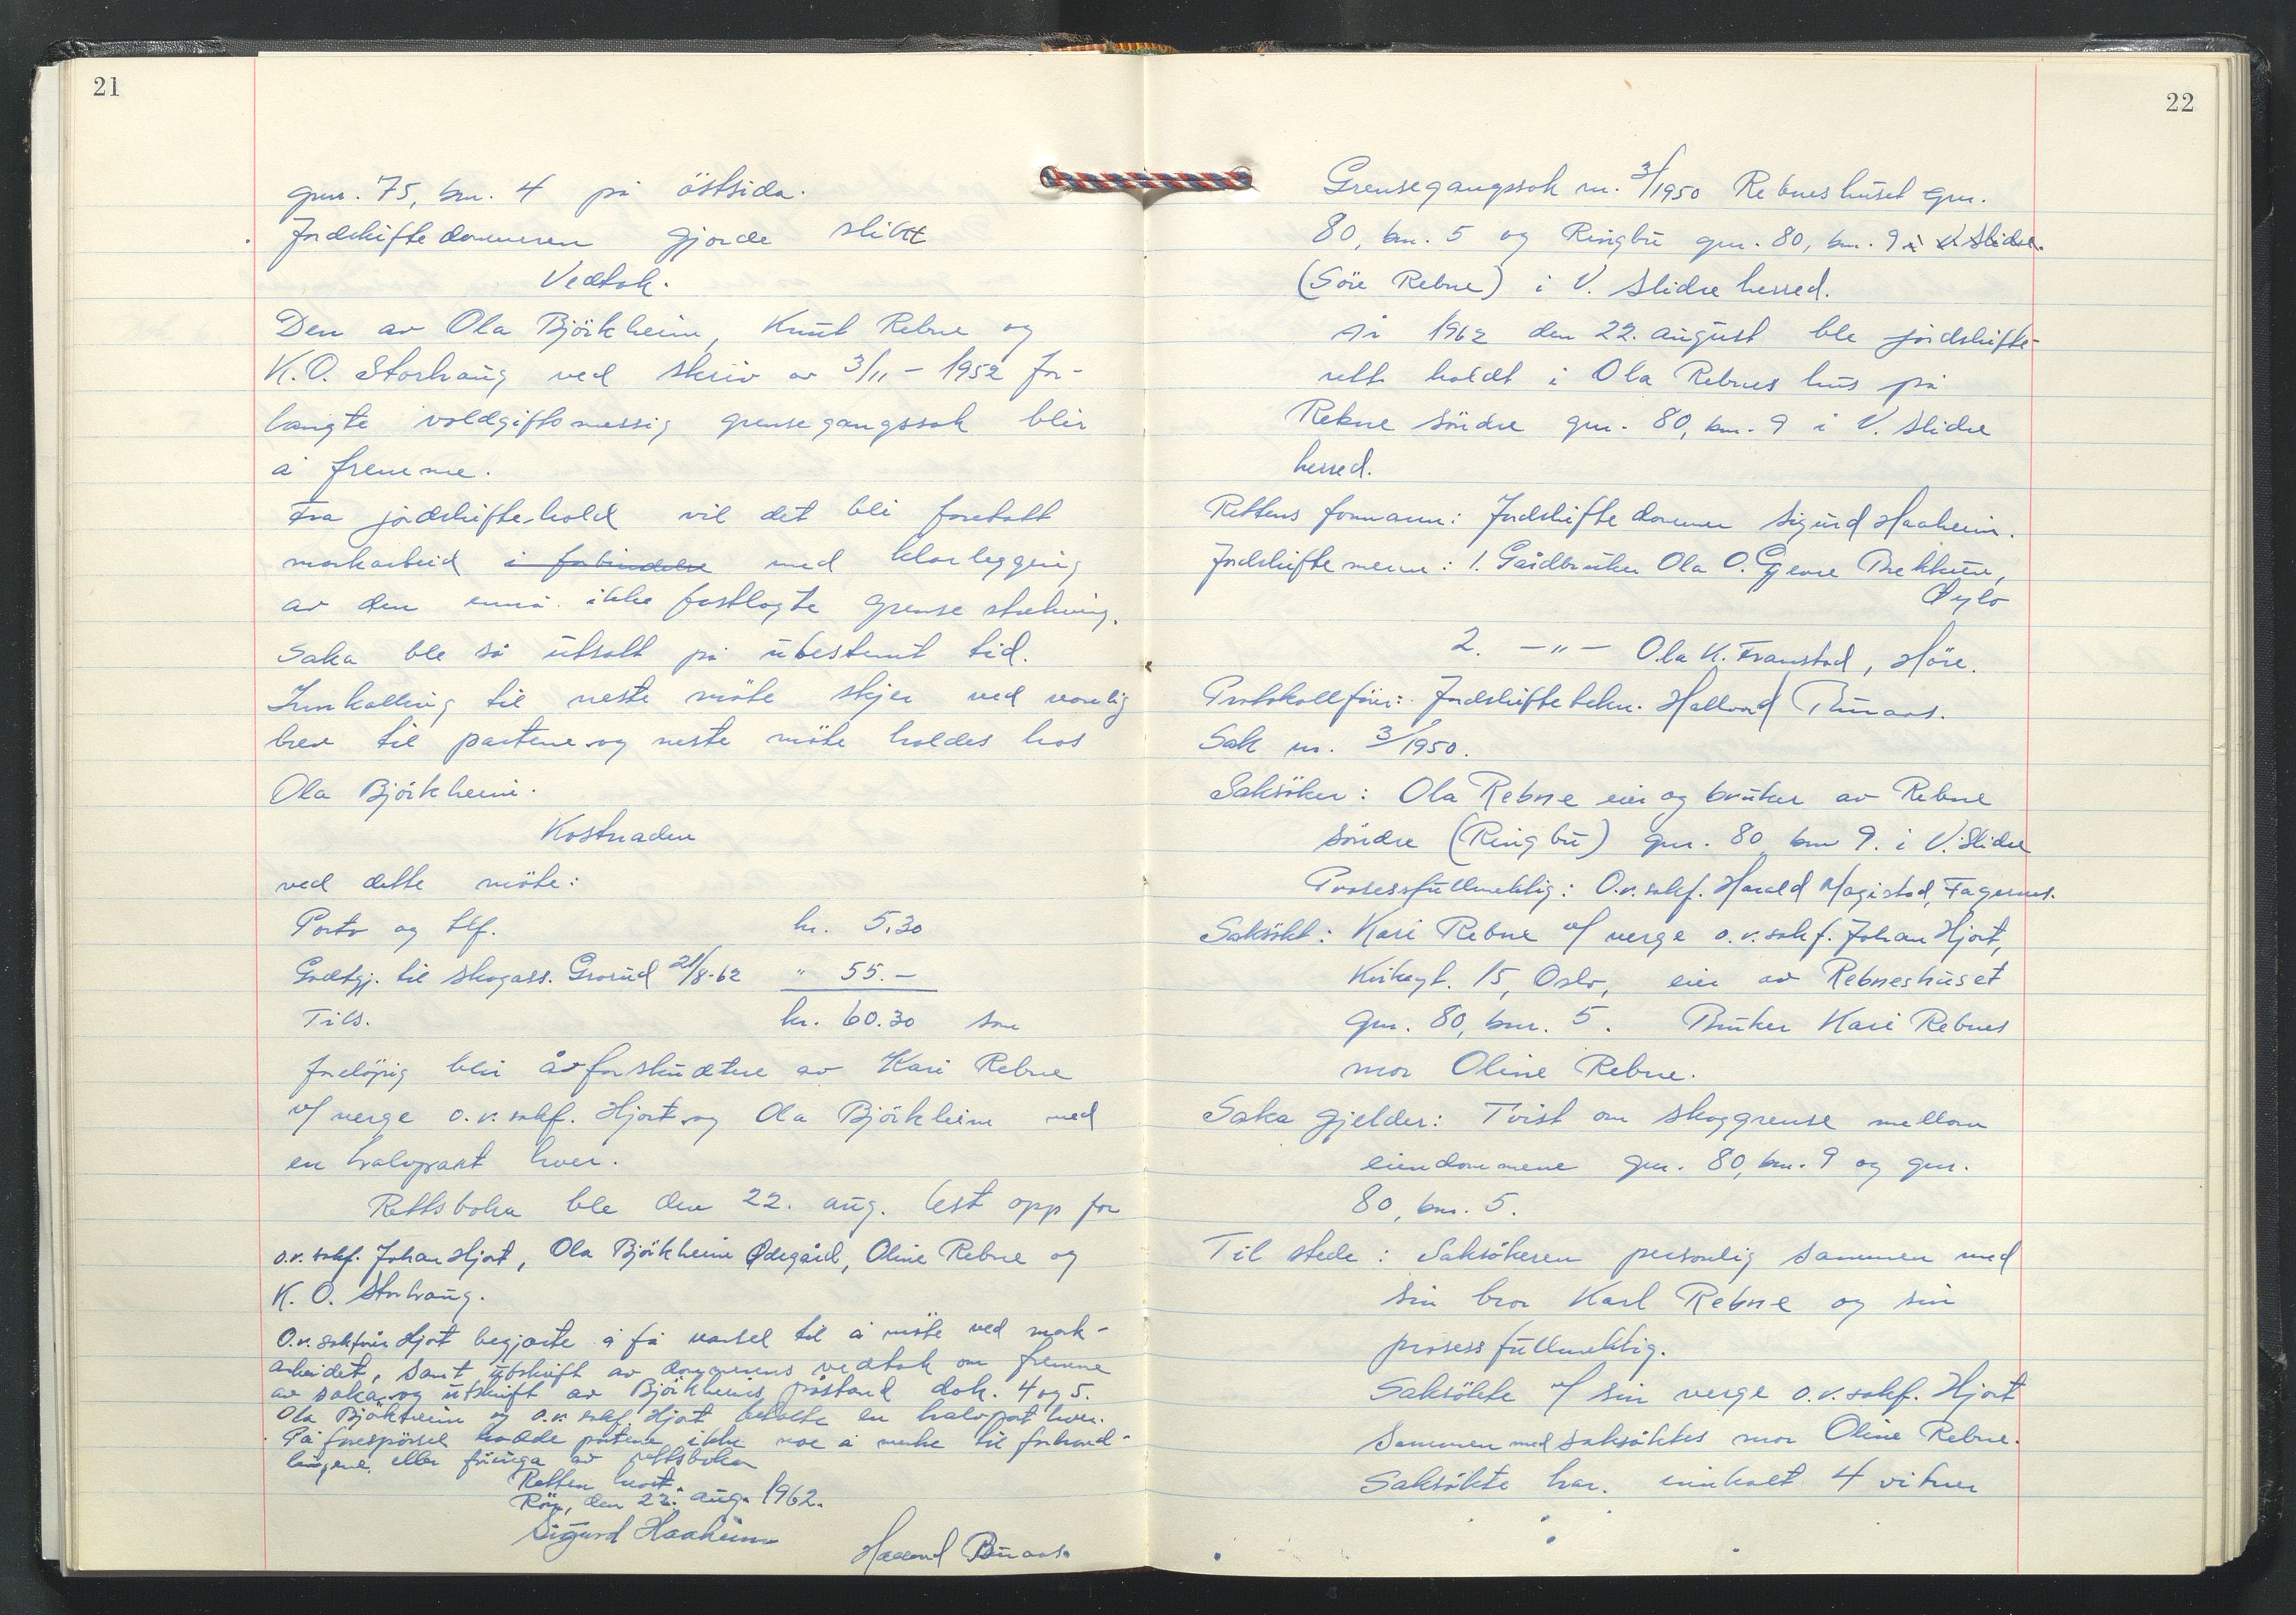 21
gnr. 75, bnr. 4 på östsida.
Jordskiftedommeren gjorde slikt
Vedtak.
Den av Ola Björkheim, Knut Rebne og
K.O. Storhaug ved skriv av 3/11 - 1952 for-
langte voldgiftsmessig grensegangssak blir
å fremme.
Fra jordskifte-hold vil det bli foretatt
markarbeid i forbindelse med klarlegging
av den ennå ikke fastlagte grensestrekning.
Saka ble så utsatt på ubestemt tid.
Innkalling til neste möte skjer ved vanlig
brev til partene og neste möte holdes hos
Ola Björkheim.
Kostnaden
ved dette möte:
Porto og tlf. kr. 5.30
Godtgj. til skogass. Grosrud 21/8-62 " 55.-
Tils. kr. 60.30 som
forelöpig blir å forskuttere av Kari Rebne
v/ verge o.r.sakf. Hjort og Ola Björkheim med
en halvpart hver.
Rettsboka ble den 22. aug. lest opp for
o.r.sakf. Johan Hjort, Ola Björkheim Ødegård, Oline Rebne og
K. O. Storhaug.
O.r. sakförer Hjort begjærte å få varsel til å möte ved mark-
arbeidet, samt utskrift av dommerens vedtak om fremme
av saka og utskrift av Björkheims påstand dok. 4 og 5.
Ola Björkheim og o.r. sakf. Hjort betalte en halvpart hver.
På forespörsel hadde partene ikke noe å merke til forhand-
lingene eller föringa av rettsboka
Retten hevet.
Rön, den 22. aug. 1962.
Sigurd Haaheim
Hallvard Buaas.
22
Grensegangssak nr. 3/1950 Rebneshuset gnr.
80, bnr. 5 og Ringbu gnr. 80, bnr. 9 i V. Slidre.
(Söre Rebne) i V. Slidre herred.
År 1962 den 22. august ble jordskifte-
rett holdt i Ola Rebnes hus på
Rebne söndre gnr. 80, bnr. 9 i V. Slidre
herred.
Rettens formann: Jordskiftedommer Sigurd Haaheim.
Jordskiftemenn: 1. Gårdbruker Ola O. Gjevre Brekkun,
Øylo
2. -"- Ola K. Framstad, Höre.
Protokollförer: Jordskiftetekn. Hallvard Buaas.
Sak nr. 3/1950.
Saksöker: Ola Rebne eier og bruker av Rebne
söndre (Ringbu) gnr. 80 bnr 9. i V. Slidre
Prosessfullmektig: O.r.sakf. Harald Magistad, Fagernes.
Saksökt: Kari Rebne v/ verge o.r.sakf. Johan Hjort,
Kirkegt. 15, Oslo, eier av Rebneshuset
gnr. 80, bnr. 5. Bruker Kari Rebnes
mor Oline Rebne.
Saka gjelder: Tvist om skoggrense mellom
eiendommene gnr. 80, bnr. 9 og gnr.
80, bnr. 5.
Til stede: Saksökeren personlig sammen med
sin bror Karl Rebne og sin
prosessfullmektig.
Saksökte v/ sin verge o.r.sakf. Hjort
sammen med saksöktes mor Oline Rebne.
Saksökte har innkalt 4 vitner